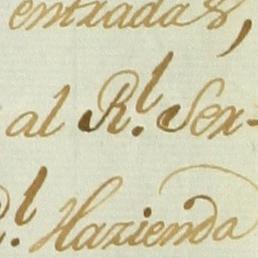 entradas,
al R.l Ser-
R.l Hazienda